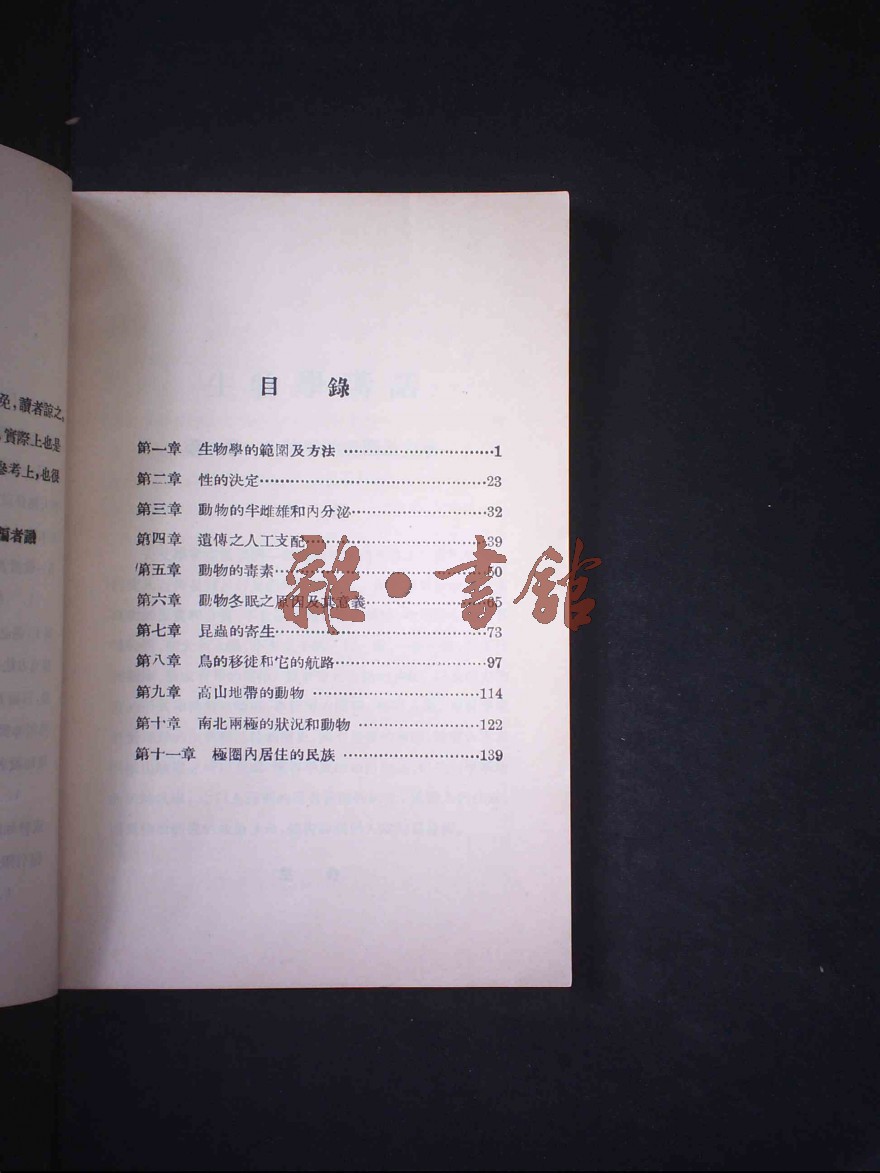 免，讀者諒之，
實際上也是
參考上，也很
編者識
目　錄
第一章　生物學的範圍及方法…………………………1
第二章　性的決定……………………………………23
第三章　動物的半雌雄和內分泌……………………32
第四章　遺傳之人工支配……………………………39
第五章　動物的毒素…………………………………50
第六章　動物冬眠之原因及其意義…………………65
第七章　昆蟲的寄生…………………………………73
第八章　鳥的移徙和它的航路………………………97
第九章　高山地帶的動物……………………………114
第十章　南北兩極的狀況和動物……………………122
第十一章　極圈內居住的民族………………………139
雜·書館